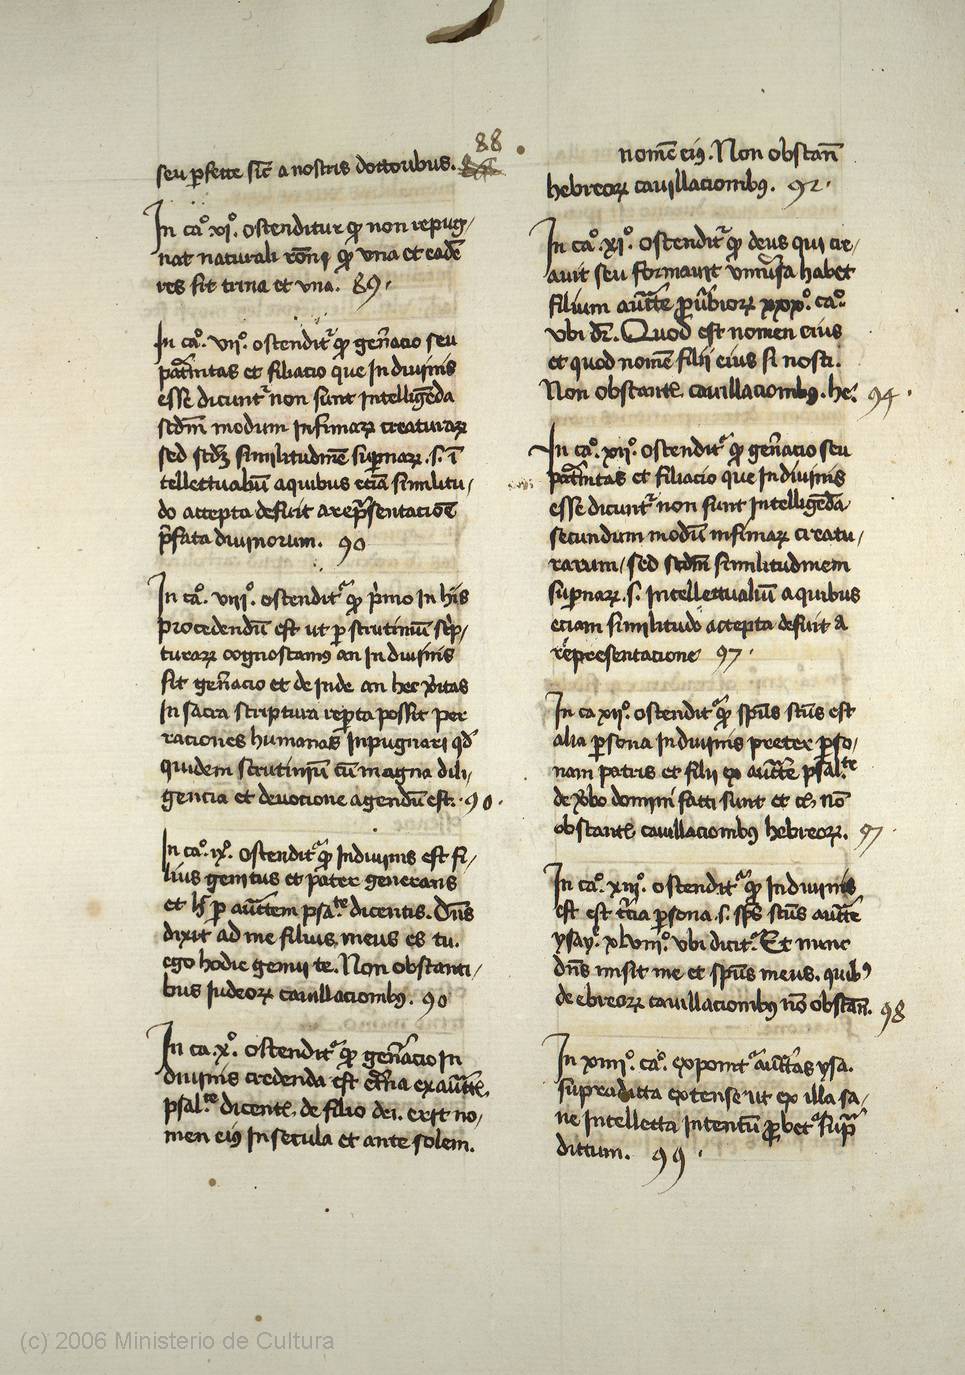 88
seu ꝑfecte sic̄ a nostris doctoribus.
In ca°. vi°. ostenditur ꝙ non repug/
nat naturali rōni ꝙ vna et eadē
res sit trina et vna. 89.
In ca°. vii°. ostendit᷑ ꝙ gen̄acio seu
pat̄nitas et filiacio que In diuinis
esse dicunt᷑ non sunt Intelligēda
scdm̄ modum Infimaꝝ creaturaꝝ
sed scdꝫ similitudinē sup̄naꝝ .s. ī
tellectualiū a quibus eciā similitu/
do accepta deficit a rep̄sentacióē
p̄fata diuinorum. 90
In ca°. viii°. ostendit᷑ ꝙ p̄imo In his
procedendū est ut ꝑ scrutiniū sc̄ip/
turaꝝ cognoscamꝰ an In diuinis
sit gen̄acio et de Inde an hec v̄itas
In sacra scriptura rep̄ta possit per
raciones humanas Inpugnari qd̄
quidem scrutiniū cū magna dili/
gencia et deuocione agendū est. 90.
In ca°. ix°. ostendit᷑ ꝙ In diuinis est fi/
lius genitus et pater generans
et h̄ ꝑ auc̄tem psa.te dicentis. Dn̄s
dixit ad me filius meus es tu.
ego hodie genui te. Non obstanti/
bus Iudeoꝝ cauillacionibꝰ. 90
In ca. x°. ostendit᷑ ꝙ gen̄acio In
diuinis credenda est et̄na ex auc̄tꝭ
psal.te dicentꝭ. de filio dei. erit no/
men eiꝰ In secula et ante solem.
nomē eiꝰ. Non obstan̄
hebreoꝝ cauillacionibꝰ. 92.
In ca°. xi°. ostendit᷑ ꝙ deus qui cre/
auit seu formauit vniūsa habet
filium auc̄te ꝓūbioꝝ xxx°. ca°.
vbi dr̄. Quod est nomen eius
et quod nomē filii eius si nosti.
Non obstantꝭ. cauillacionibꝰ. he. 94.
In ca°. xii°. ostendit᷑ ꝙ gen̄acio seu
pat̄nitas et filiacio que In diuinis
esse dicunt᷑ non sunt Intelligēda
secundum modū infimaꝝ creatu/
rarum/ sed scdm̄ similitudinem
sup̄naꝝ .s. Intellectualiū a quibus
eciam similitudo accepta deficit a
representacione 97.
In ca xii°. ostendit᷑ ꝙ sp̄us sc̄us est
alia ꝑsona In diuinis preter ꝑso/
nam patris et filii ex auc̄te psal.te
de v̄bo domini facti sunt et cꝭ nō
obstantꝭ cauillacionibꝰ hebreoꝝ. 97.
In ca°. xiii°. ostendit᷑ ꝙ In diuinis
est est t̄cia ꝑsona .s. sp̄s sc̄us auc̄te
ysay. xlviii°. vbi dicit᷑. Et nunc
dn̄s misit me et sp̄us meus. quibꝰ
de ebreoꝝ cauillacionibꝰ nō obstan̄. 98
In xiiii°. ca°. exponit᷑ auc̄tas ysa.
supradicta extense ut ex illa sa/
ne Intellecta Intentū ꝓbet᷑ sup̄a
dictum. 99.
(c) 2006 Ministerio de Cultura